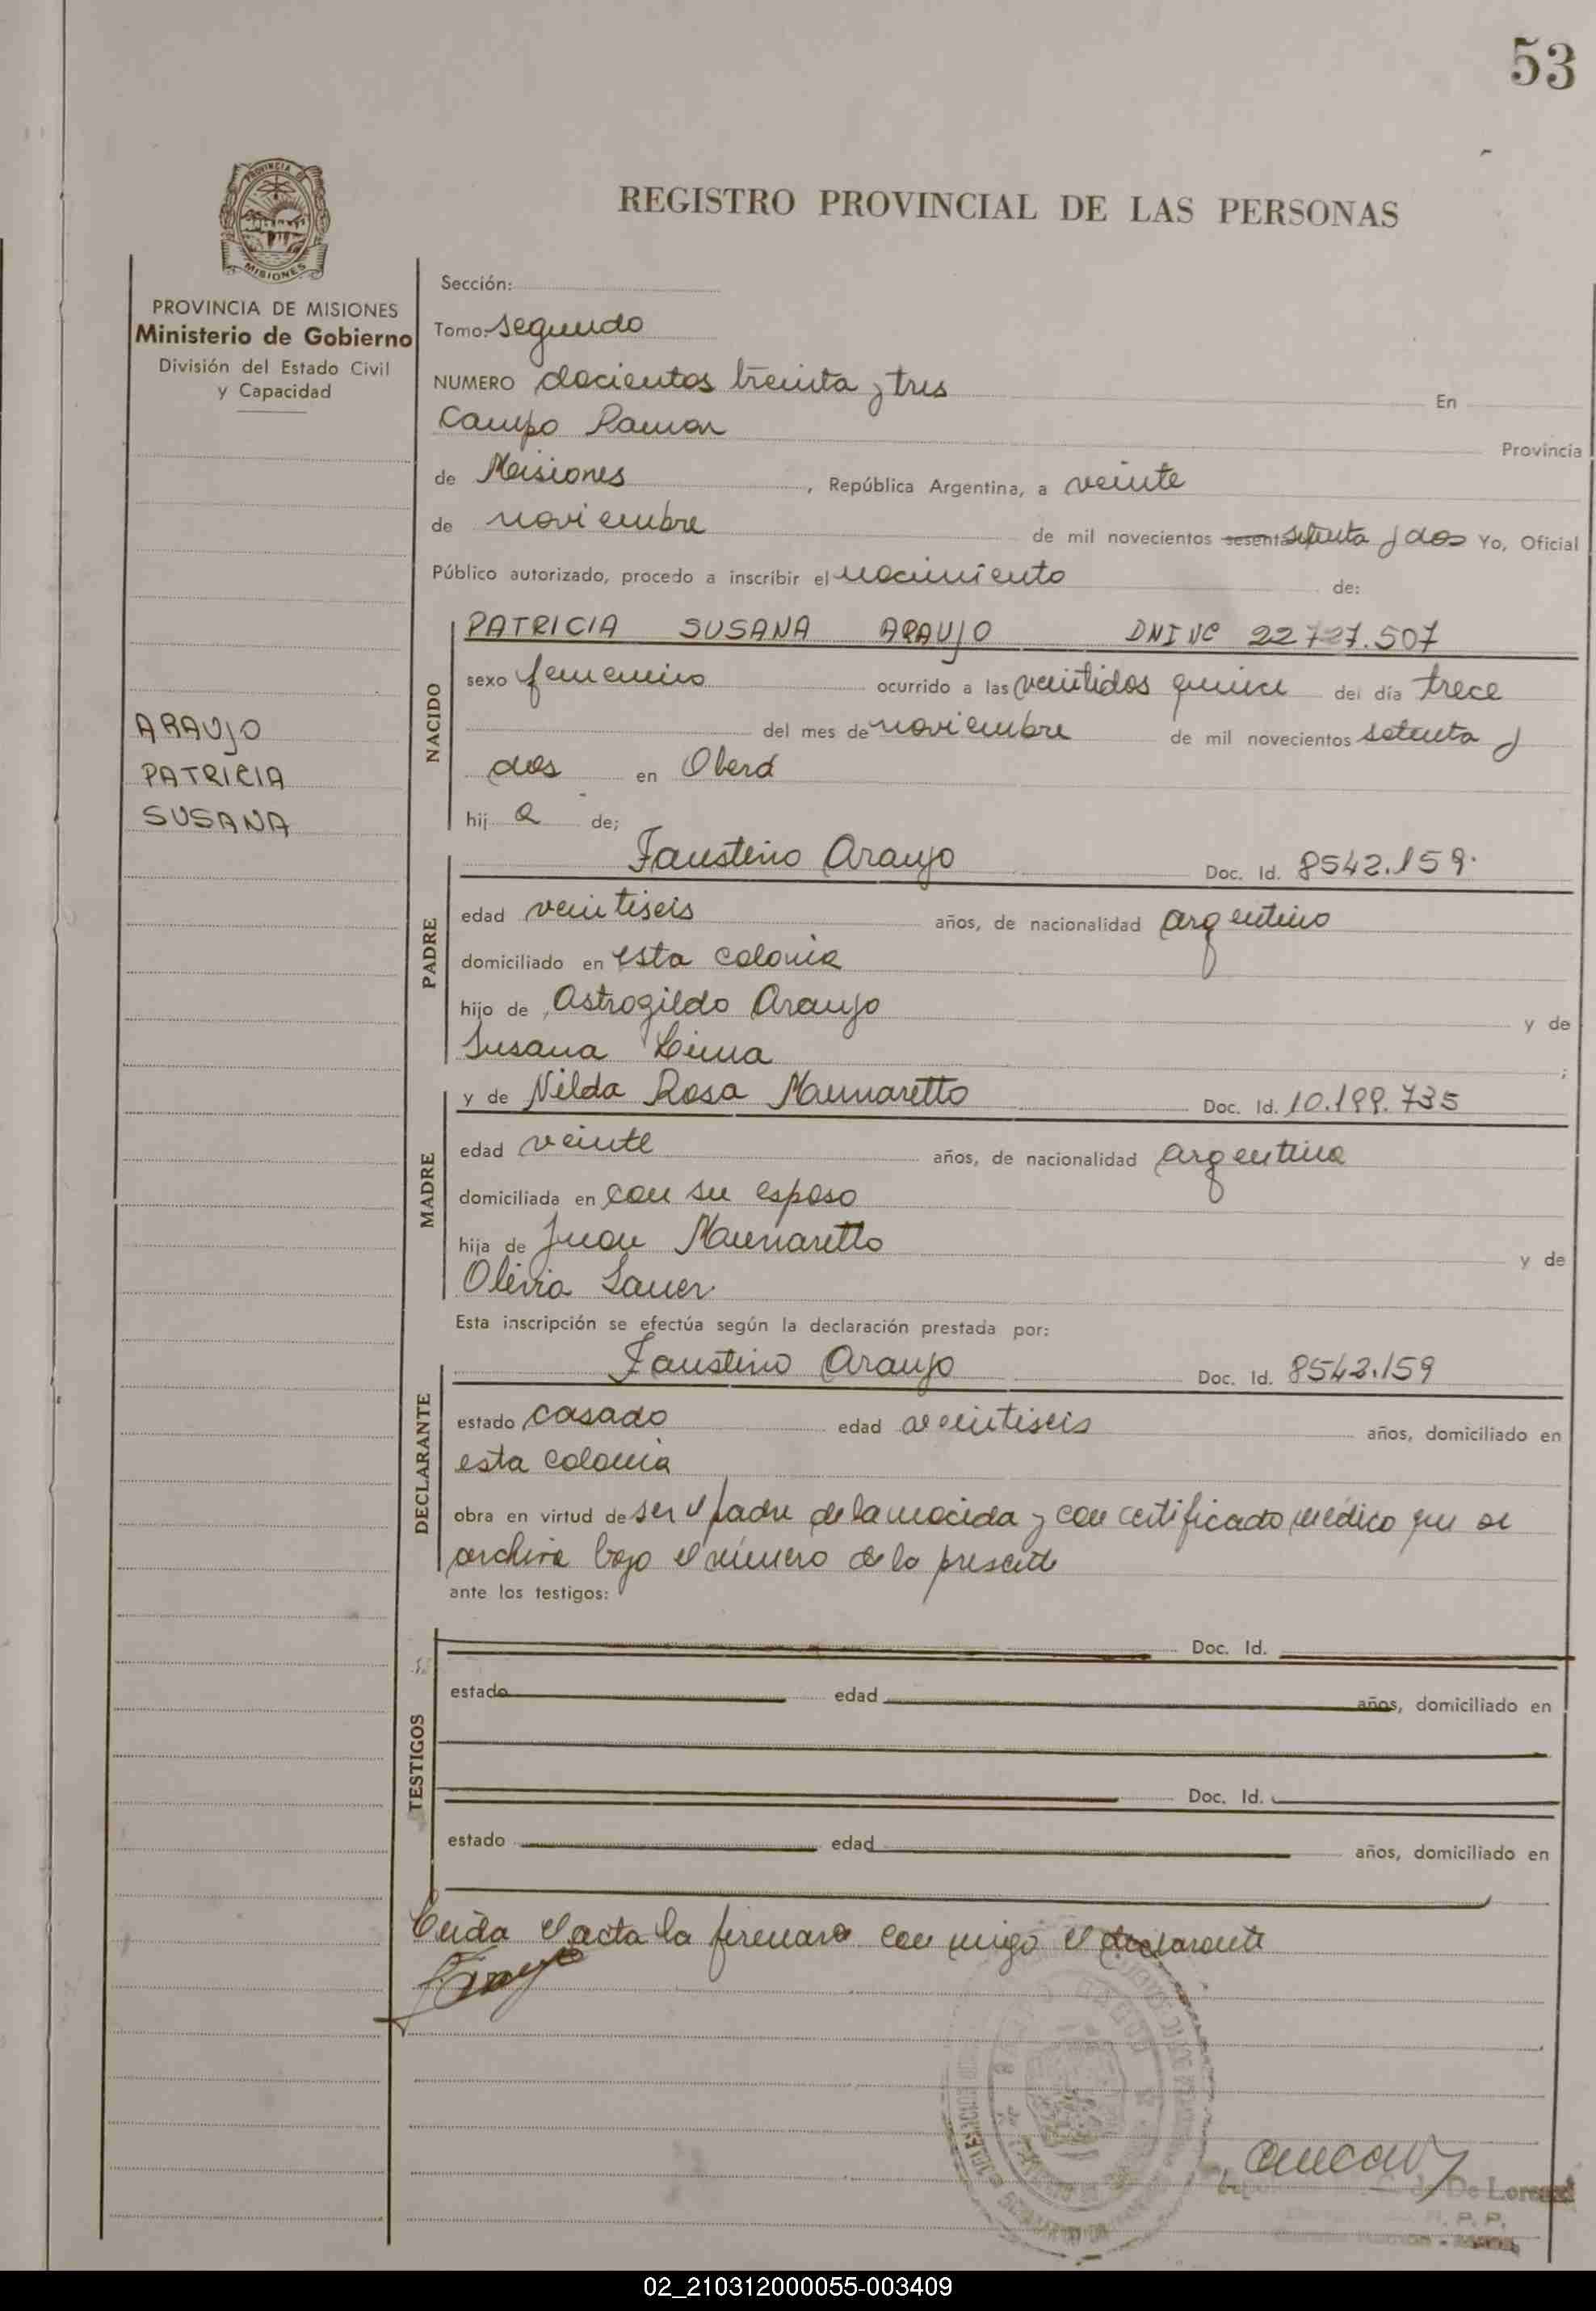 53
PROVINCIA DE
MISIONES
REGISTRO PROVINCIAL DE LAS PERSONAS
PROVINCIA DE MISIONES
Ministerio de Gobierno
División del Estado Civil
y Capacidad
ARAUJO
PATRICIA
SUSANA
Sección:
Tomo: segundo
NUMERO docientos treinta y tres En
Campo Ramon Provincia
de Misiones , República Argentina, a veinte
de noviembre de mil novecientos sesenta setenta y dos Yo, Oficial
Público autorizado, procedo a inscribir el nacimiento de:
NACIDO
PATRICIA SUSANA ARAUJO DNI Nº 22.727.507
sexo femenino ocurrido a las veintidos quince del día trece
del mes de noviembre de mil novecientos setenta y
dos en Oberá
hij a de;
PADRE
Faustino Araujo Doc. Id. 8542.159.
edad veintiseis años, de nacionalidad argentino
domiciliado en esta colonia
hijo de Astrogildo Araujo y de
Susana Lima ;
MADRE
y de Nilda Rosa Munaretto Doc. Id. 10.199.735
edad veinte años, de nacionalidad argentina
domiciliada en con su esposo
hija de Juan Munaretto y de
Olivia Sauer
Esta inscripción se efectúa según la declaración prestada por:
DECLARANTE
Faustino Araujo Doc. Id. 8542.159
estado casado edad veintiseis años, domiciliado en
esta colonia
obra en virtud de ser el padre de la nacida y con certificado médico que se
archiva bajo el número de la presente
ante los testigos:
TESTIGOS
Doc. Id.
estado edad años, domiciliado en
Doc. Id.
estado edad años, domiciliado en
Leida el acta la firmara con migo el declarante
de De Lorenzi
R. P. P.
02_210312000055-003409